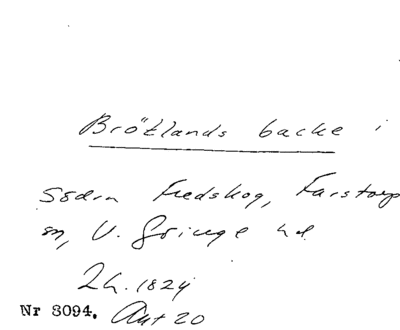 Brötlands backe i
Södra Fredskog, Farstorp
sn, V. Göinge hd
Lh. 1824
Nr 3094. Akt 20